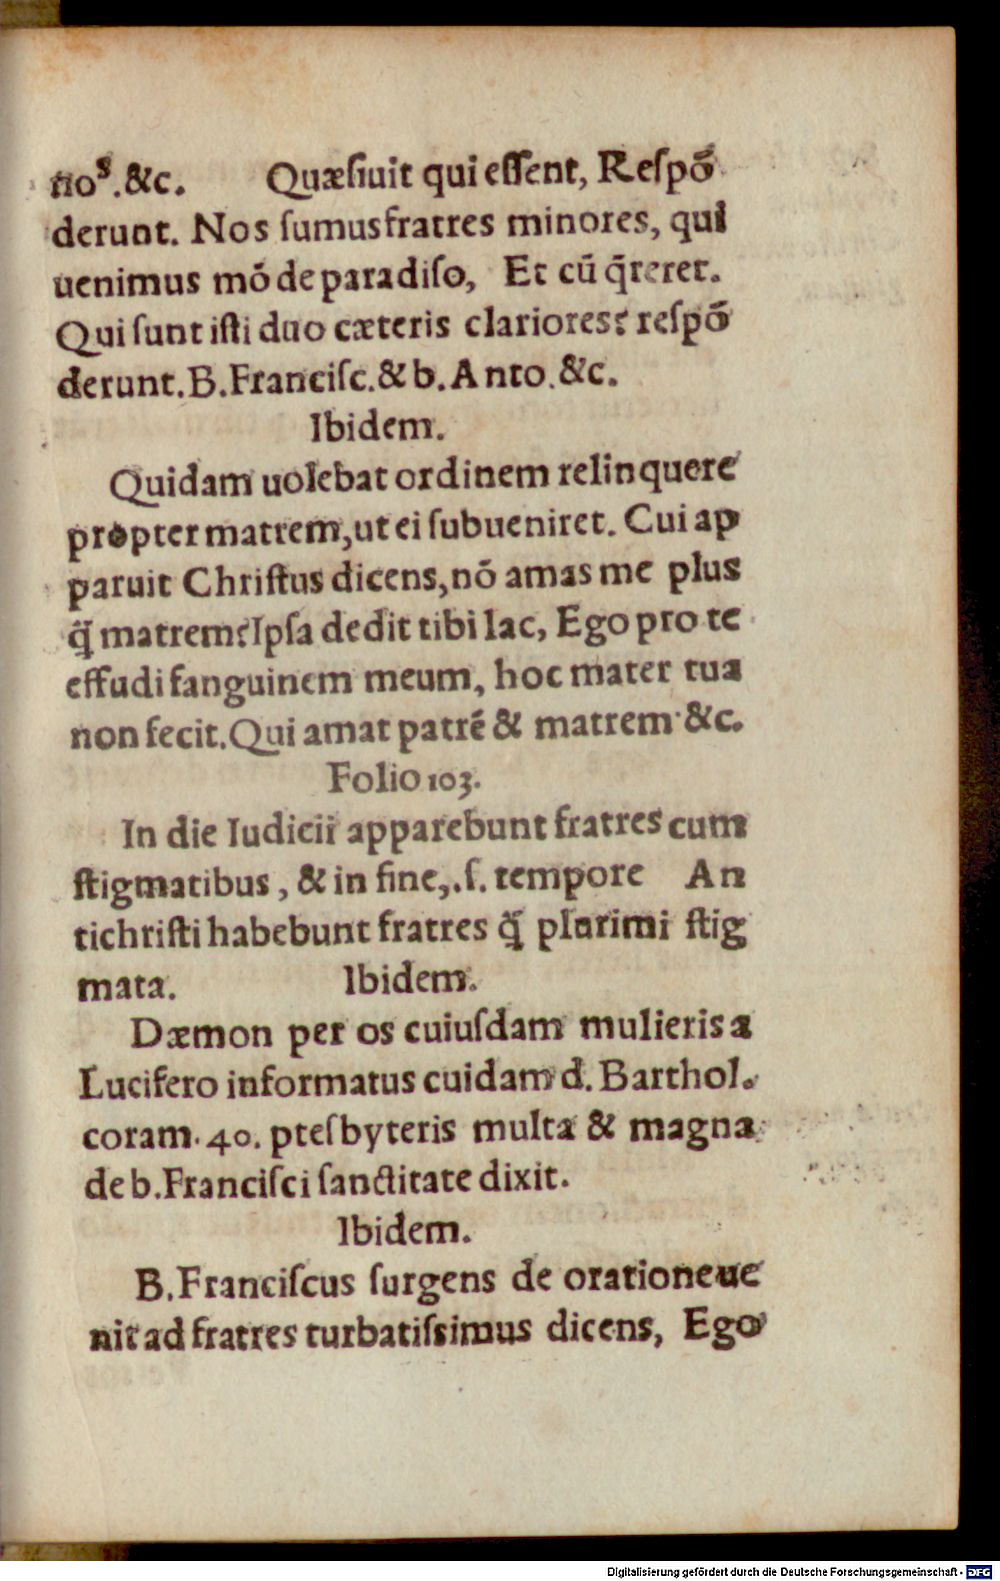 tioˢ.&c. Quæſiuit qui eſſent, Reſpō
derunt. Nos ſumus fratres minores, qui
uenimus mō de paradiſo, Et cū q̄reret.
Qui ſunt iſti duo cæteris clariores? reſpō
derunt. B. Franciſc. & b. Anto. &c.
Ibidem.
Quidam uolebat ordinem relinquere
propter matrem, ut ei ſubueniret. Cui ap
paruit Chriſtus dicens, nō amas me plus
q̄ matrem? Ipſa dedit tibi lac, Ego pro te
effudi ſanguinem meum, hoc mater tua
non fecit. Qui amat patrē & matrem &c.
Folio 103.
In die Iudicii apparebunt fratres cum
ſtigmatibus, & in fine, .ſ. tempore An
tichriſti habebunt fratres q̄ plurimi ſtig
mata. Ibidem.
Dæmon per os cuiuſdam mulieris a
Lucifero informatus cuidam d. Barthol.
coram .40. pteſbyteris multa & magna
de b. Franciſci ſanctitate dixit.
Ibidem.
B. Franciſcus ſurgens de oratione ue
nit ad fratres turbatiſſimus dicens, Ego
Digitalisierung gefördert durch die Deutsche Forschungsgemeinschaft - DFG